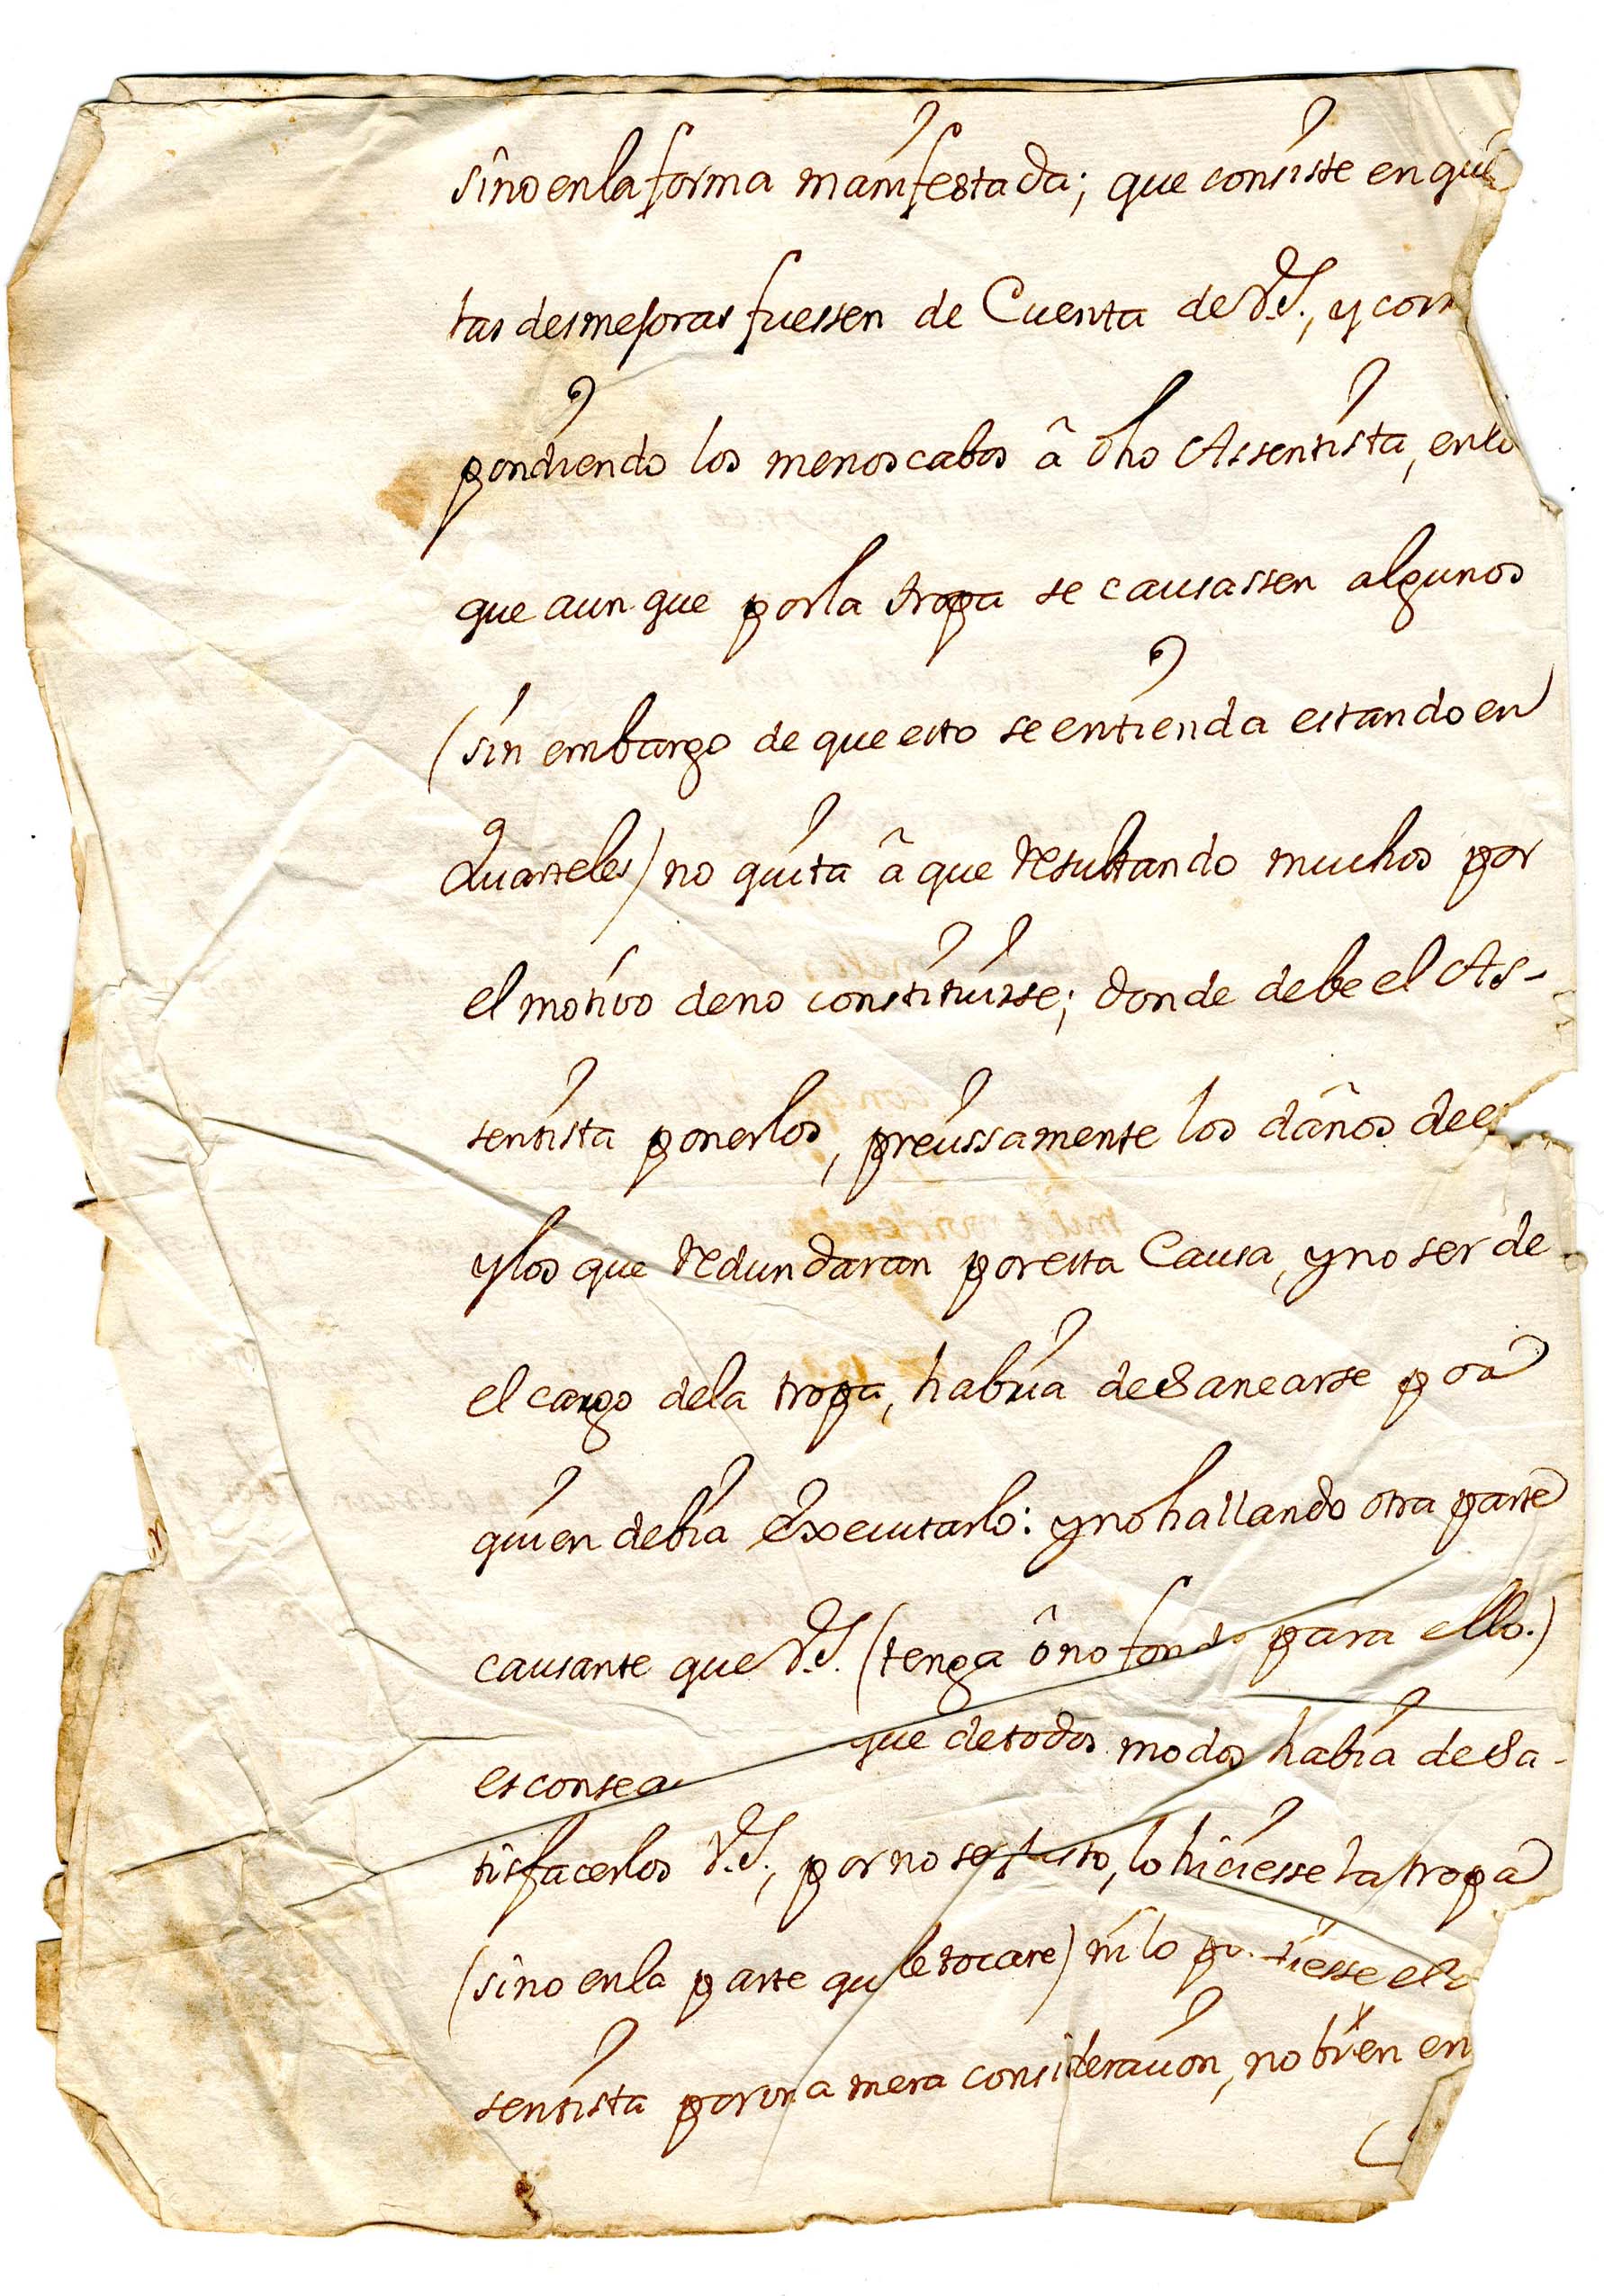 sino en la forma manifestada; que consiste en que
tas desmejoras fuessen de Cuenta de V.S., y corr
pondiendo los menoscabos â dho Assentista, en lo
que aunque por la tropa se causassen algunos
(sin embargo de que esto se entienda estando en
Quarteles) no quita â que resultando muchos por
el motivo de no constituirse; donde debe el As-
sentista ponerlos, precissamente los daños de e
y los que redundaran por esta Causa, y no ser de
el cargo de la tropa, habria de Sanearse por
quien debia Executarlo: y no hallando otra parte
causante que V.S. (tenga ô no fondo para ello.)
es consea que de todos modos habia de Sa-
tisfacerlos V.S., por no ser justo, lo hiciesse la tropa
(sino en la parte que le tocare) ni lo tiesse el
sentista por una mera consideracion, no bien en